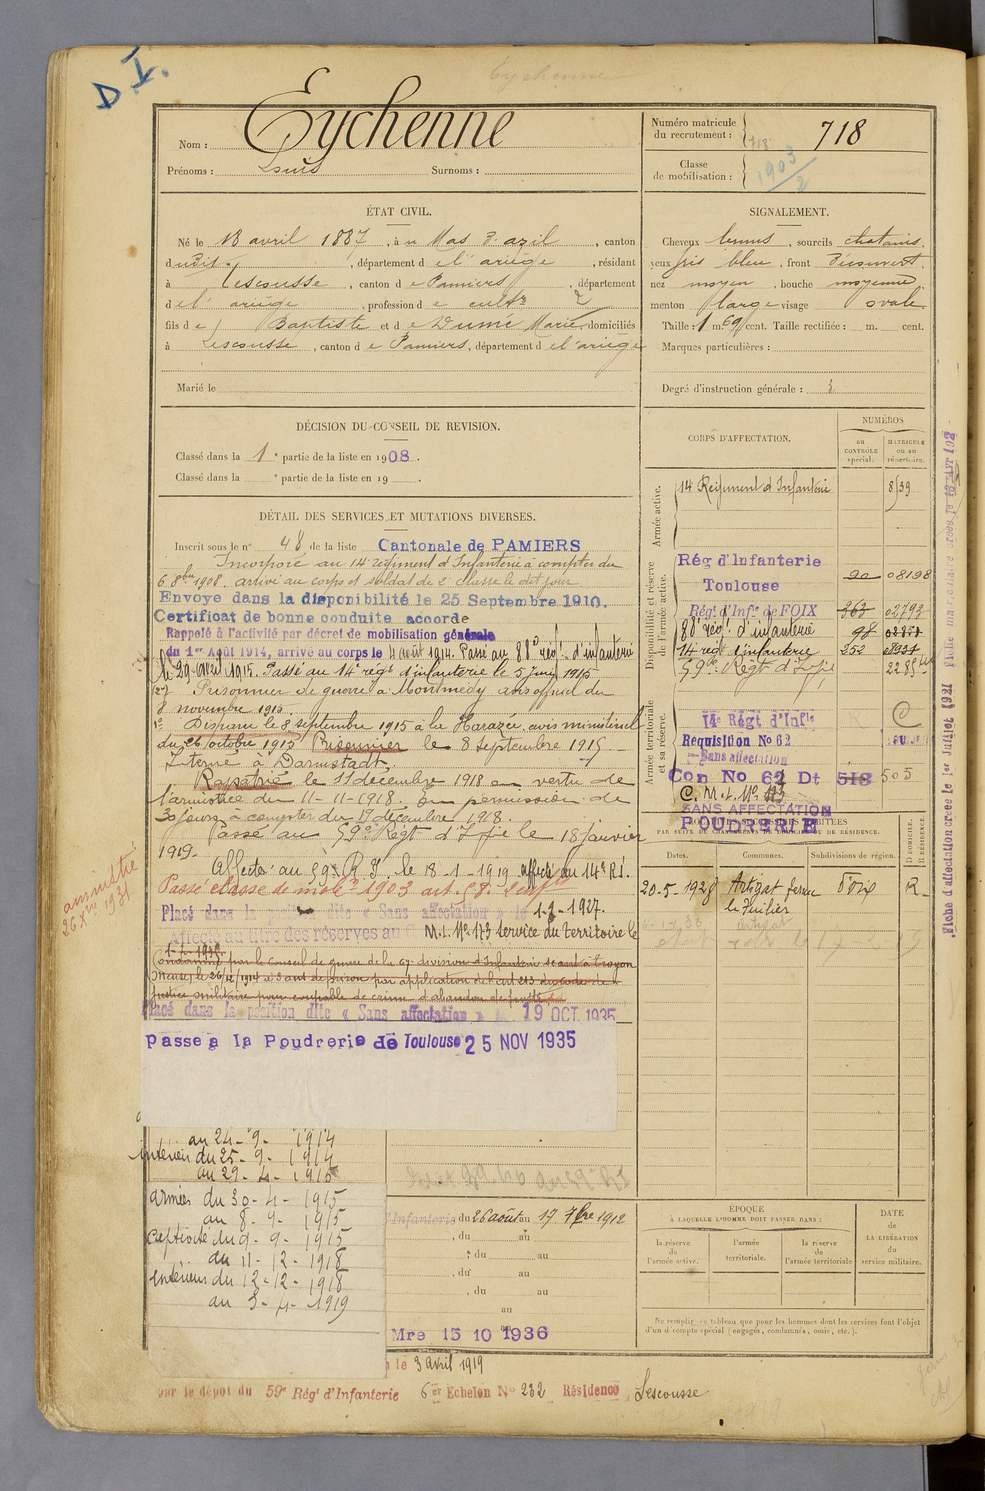 D I.
Eychenne
Nom : Eychenne
Prénoms : Louis Surnoms :
Numéro matricule
du recrutement : 718
Classe
de mobilisation : 1903/2
ÉTAT CIVIL.
Né le 18 avril 1887, à u Mas d'azil, canton
dudit, département de l'ariège, résidant
à Lescousse, canton de Pamiers, département
de l'ariège, profession de cultr
fils de Baptiste et de Dumé Marie domiciliés
à Lescousse, canton de Pamiers, département de l'ariège
Marié le
SIGNALEMENT.
Cheveux bruns, sourcils chatains,
yeux gris bleu, front découvert,
nez moyen, bouche moyenne,
menton large visage ovale.
Taille : 1 m 69 cent. Taille rectifiée : m. cent.
Marques particulières :
Degré d'instruction générale : 3
DÉCISION DU CONSEIL DE REVISION.
Classé dans la 1e partie de la liste en 1908.
Classé dans la e partie de la liste en 19 .
DÉTAIL DES SERVICES ET MUTATIONS DIVERSES.
Inscrit sous le n° 48 de la liste Cantonale de PAMIERS
Incorporé au 14 régiment d'Infanterie à compter du
6 8bre 1908. arrivé au corps et soldat de 2e classe le dit jour
Envoye dans la disponibilité le 25 Septembre 1910.
Certificat de bonne conduite accorde
Rappelé à l'activité par décret de mobilisation générale
du 1er Août 1914, arrivé au corps le 4 août 1914. Passé au 88e régt d'infanterie
le 29 avril 1915. Passé au 14e régt d'infanterie le 5 juin 1915
(2°) Prisonnier de guerre à Montmédy avis officiel du
8 novembre 1915.
1° Disparu le 8 septembre 1915 à la Harazée, avis ministériel
du 26 octobre 1915 Prisonnier le 8 septembre 1915
Interné à Darmstadt,
Rapatrié le 11 décembre 1918 en vertu de
l'armistice du 11-11-1918. en permission de
30 jours à compter du 17 décembre 1918.
Passé au 59e Régt d'Ifie le 18 janvier
1919.
Affecté au 59e R.I. le 18-1-1919 affecté au 14e R.I.
Passé classe de mob. 1903 art. 58
Placé dans la position dite « Sans affectation » le 1-2-1927.
Affecté au titre des réserves au M.t. N° 173 service du territoire le
amnistie
26 Xbre 1931
Condamné par le Conseil de guerre de la 67e division d'Infanterie séant à Troyon
Meuse, le 26/12/1914 à 3 ans de prison par application de l'art 213 du code de
justice militaire pour coupable de crime d'abandon de poste
Placé dans la position dite « Sans affectation » le 19 OCT 1935
passe a la Poudrerie de Toulouse 25 NOV 1935
au 24-9-1914
intérieur du 25-9-1914
au 29-4-1915
armées du 30-4-1915
au 8-9-1915
captivité du 9-9-1915
au 11-12-1918
intérieur du 12-12-1918
au 3-4-1919
d'Infanterie du 26 août au 17 7bre 1912
, du au
, du au
, du au
, du au
au
Mre 15 10 1936
le 3 avril 1919
par le dépot du 59e Régt d'Infanterie 6er Echelon N° 232 Résidence Lescousse
CORPS D'AFFECTATION.
NUMÉROS
au
CONTRÔLE
spécial.
MATRICULE
ou au
répertoire.
Armée active.
14 Régiment d'Infanterie 8139
Disponibilité et réserve
de l'armée active.
Rég d'Infanterie
Toulouse 20 08198
Rég. d'Infie de FOIX 363 02793
88e régt d'infanterie 98
14 régt d'infanterie 252
59e Régt d'Ifie
Armée territoriale
et sa réserve.
14e Régt d'Infie C
Requisition No 62
Sans affectation
Con No 62 Dt 518 505
C. M.t. N° 173
SANS AFFECTATION
POUDRERIE
PAR SUITE DE CHANGEMENTS DE DOMICILE OU DE RÉSIDENCE.
Dates. Communes. Subdivisions de région. D DOMICILE. R RÉSIDENCE.
20-5-1928 Artigat ferme Foix R
ÉPOQUE
À LAQUELLE L'HOMME DOIT PASSER DANS :
la réserve
de
l'armée active.
l'armée
territoriale.
la réserve
de
l'armée territoriale
DATE
de
LA LIBÉRATION
du
service militaire.
Ne remplir ce tableau que pour les hommes dont les services font l'objet
d'un décompte spécial (engagés, condamnés, omis, etc.).
Fiche d'affectation créée le 1er Juillet 1921